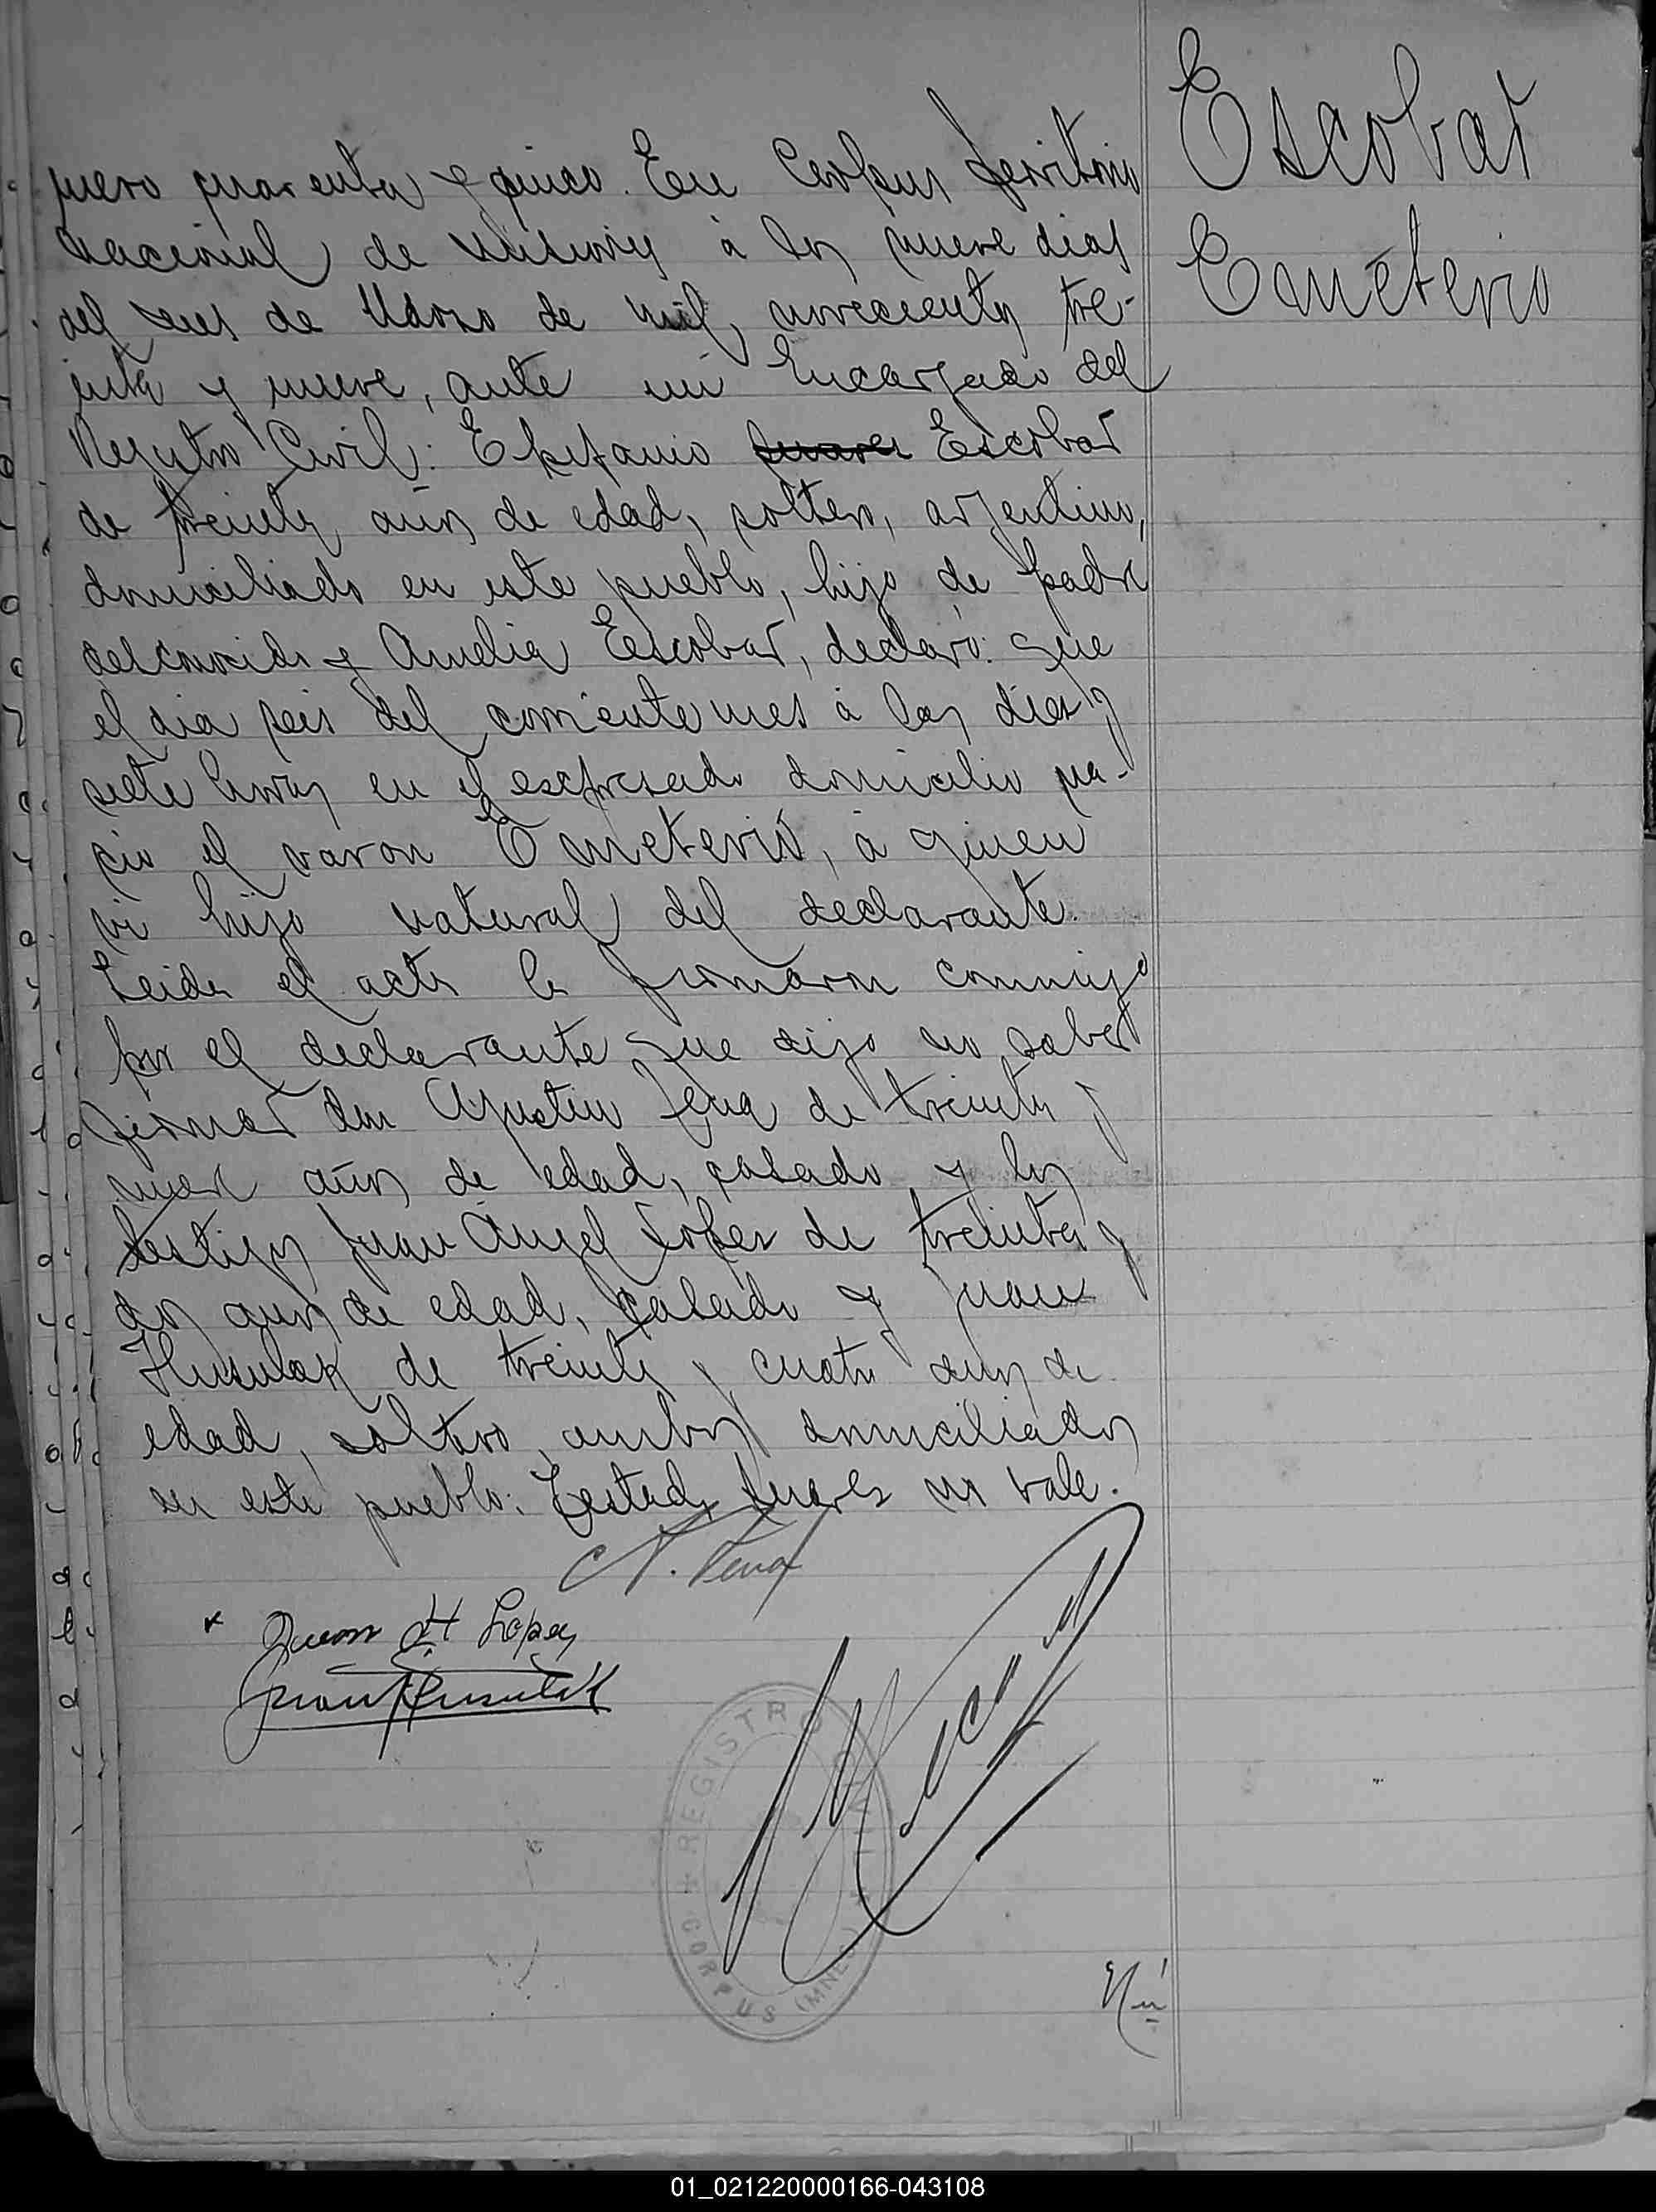 Escobar
Emeterio
mero cuarenta y cinco. En Corpus territorio
nacional de Misiones á los nueve dias
del mes de Marzo de mil, novecientos tre-
inta y nueve, ante mi Encargado del
Registro Civil: Epifanio Suarez Escobar
de treinta años de edad, soltero, argentino,
domiciliado en este pueblo, hijo de padre
desconocido y Amelia Escobar, declaró: Que
el dia seis del corriente mes á las dies y
siete horas en el expresado domicilio na-
cio el varon Emeterio, á quien
vi hijo natural del declarante.
Leida el acta la firmaron conmigo
por el declarante que dijo no saber
firmar don Agustin Pena de treinta y
nueve años de edad, casado y los
testigos Juan Angel Lopez de treinta y
dos años de edad, casado y Juan
Husulak de treinta y cuatro años de
edad, soltero, ambos domiciliados
en este pueblo. Testado Suarez no vale.
A. Pena
Juan A Lopez
Juan Husulak
REGISTRO CIVIL
CORPUS (MNES)
01_021220000166-043108